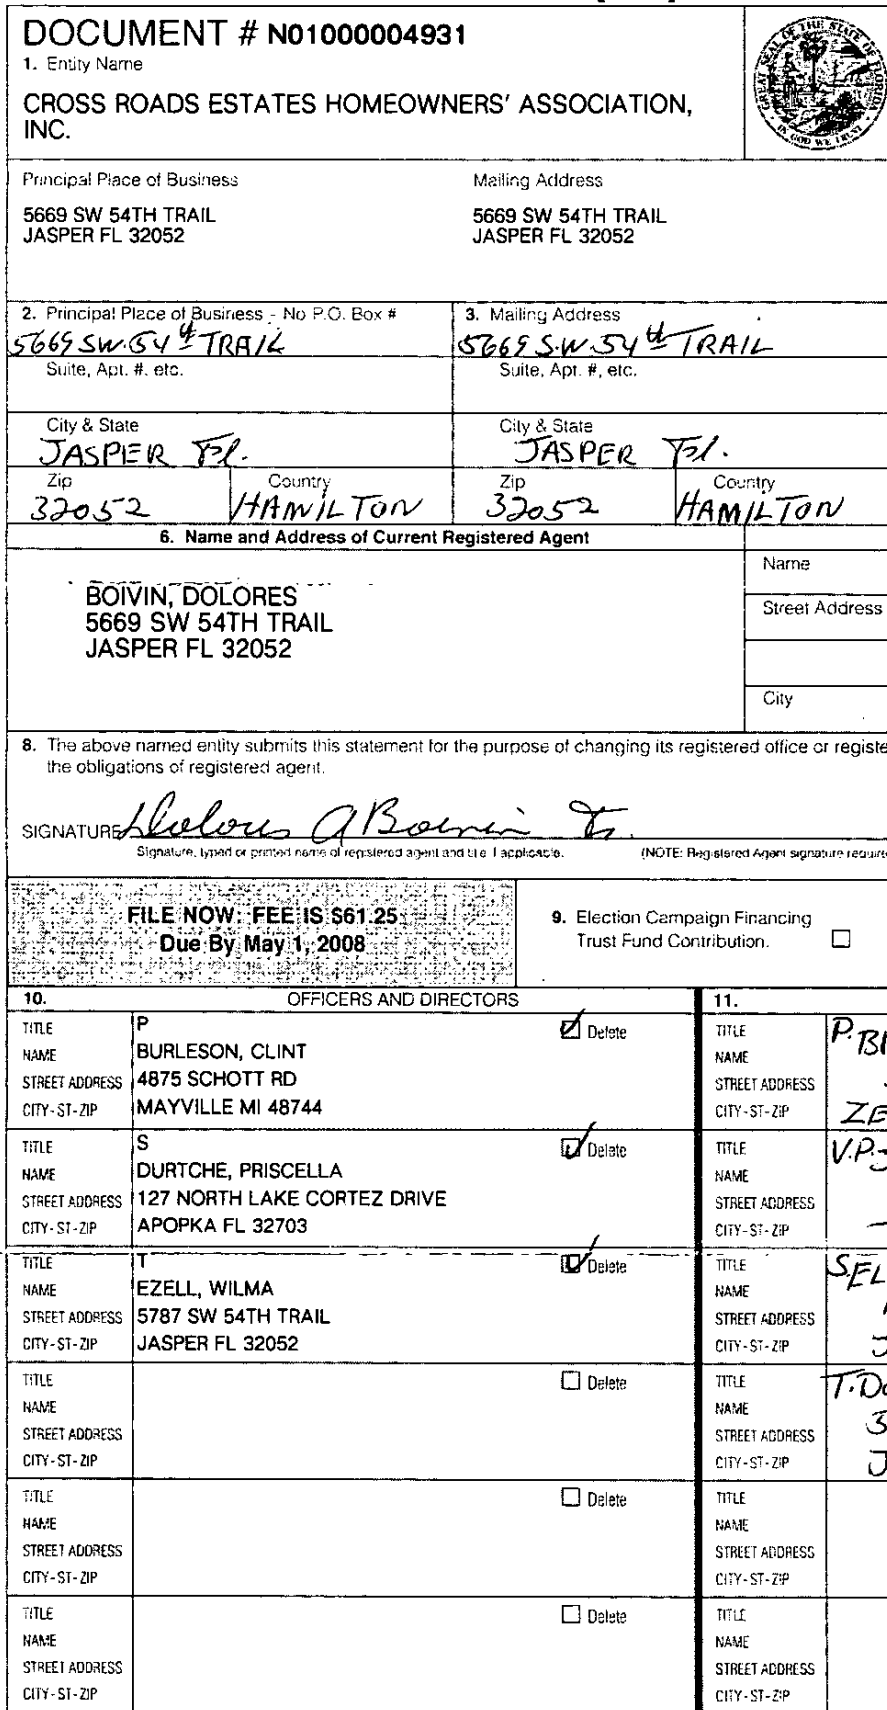 DOCUMENT # N01000004931
1. Entity Name
CROSS ROADS ESTATES HOMEOWNERS' ASSOCIATION,
INC.
GREAT SEAL OF THE STATE OF FLORIDA
IN GOD WE TRUST
Principal Place of Business
5669 SW 54TH TRAIL
JASPER FL 32052
Mailing Address
5669 SW 54TH TRAIL
JASPER FL 32052
2. Principal Place of Business - No P.O. Box #
5669 SW. 54th TRAIL
Suite, Apt. #, etc.
City & State
JASPER Fl.
Zip
32052
Country
HAMILTON
3. Mailing Address
5669 S.W. 54th TRAIL
Suite, Apt. #, etc.
City & State
JASPER Fl.
Zip
32052
Country
HAMILTON
6. Name and Address of Current Registered Agent
BOIVIN, DOLORES
5669 SW 54TH TRAIL
JASPER FL 32052
Name
Street Address
City
8. The above named entity submits this statement for the purpose of changing its registered office or registe
the obligations of registered agent.
SIGNATURE Dolores A Boivin
Signature, typed or printed name of registered agent and title if applicable. (NOTE: Registered Agent signature require
FILE NOW: FEE IS $61.25
Due By May 1, 2008
9. Election Campaign Financing
Trust Fund Contribution.
10. OFFICERS AND DIRECTORS
TITLE P Delete
NAME BURLESON, CLINT
STREET ADDRESS 4875 SCHOTT RD
CITY-ST-ZIP MAYVILLE MI 48744
TITLE S Delete
NAME DURTCHE, PRISCELLA
STREET ADDRESS 127 NORTH LAKE CORTEZ DRIVE
CITY-ST-ZIP APOPKA FL 32703
TITLE T Delete
NAME EZELL, WILMA
STREET ADDRESS 5787 SW 54TH TRAIL
CITY-ST-ZIP JASPER FL 32052
TITLE Delete
NAME
STREET ADDRESS
CITY-ST-ZIP
TITLE Delete
NAME
STREET ADDRESS
CITY-ST-ZIP
TITLE Delete
NAME
STREET ADDRESS
CITY-ST-ZIP
11.
TITLE P.
NAME
STREET ADDRESS
CITY-ST-ZIP ZE
TITLE V.P.
NAME
STREET ADDRESS
CITY-ST-ZIP
TITLE S. EL
NAME
STREET ADDRESS
CITY-ST-ZIP J
TITLE T. Do
NAME
STREET ADDRESS 3
CITY-ST-ZIP J
TITLE
NAME
STREET ADDRESS
CITY-ST-ZIP
TITLE
NAME
STREET ADDRESS
CITY-ST-ZIP